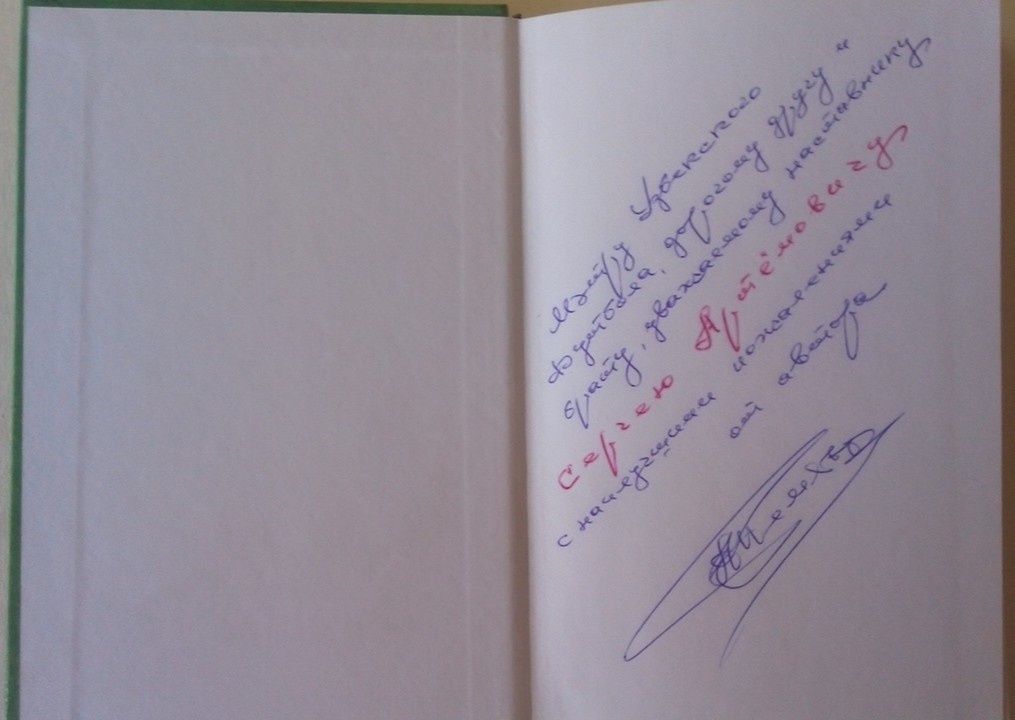 Мэтру Узбекского
футбола, дорогому другу и
брату, уважаемому наставнику
Сергею Артёмовичу
с наилучшими пожеланиями
от автора